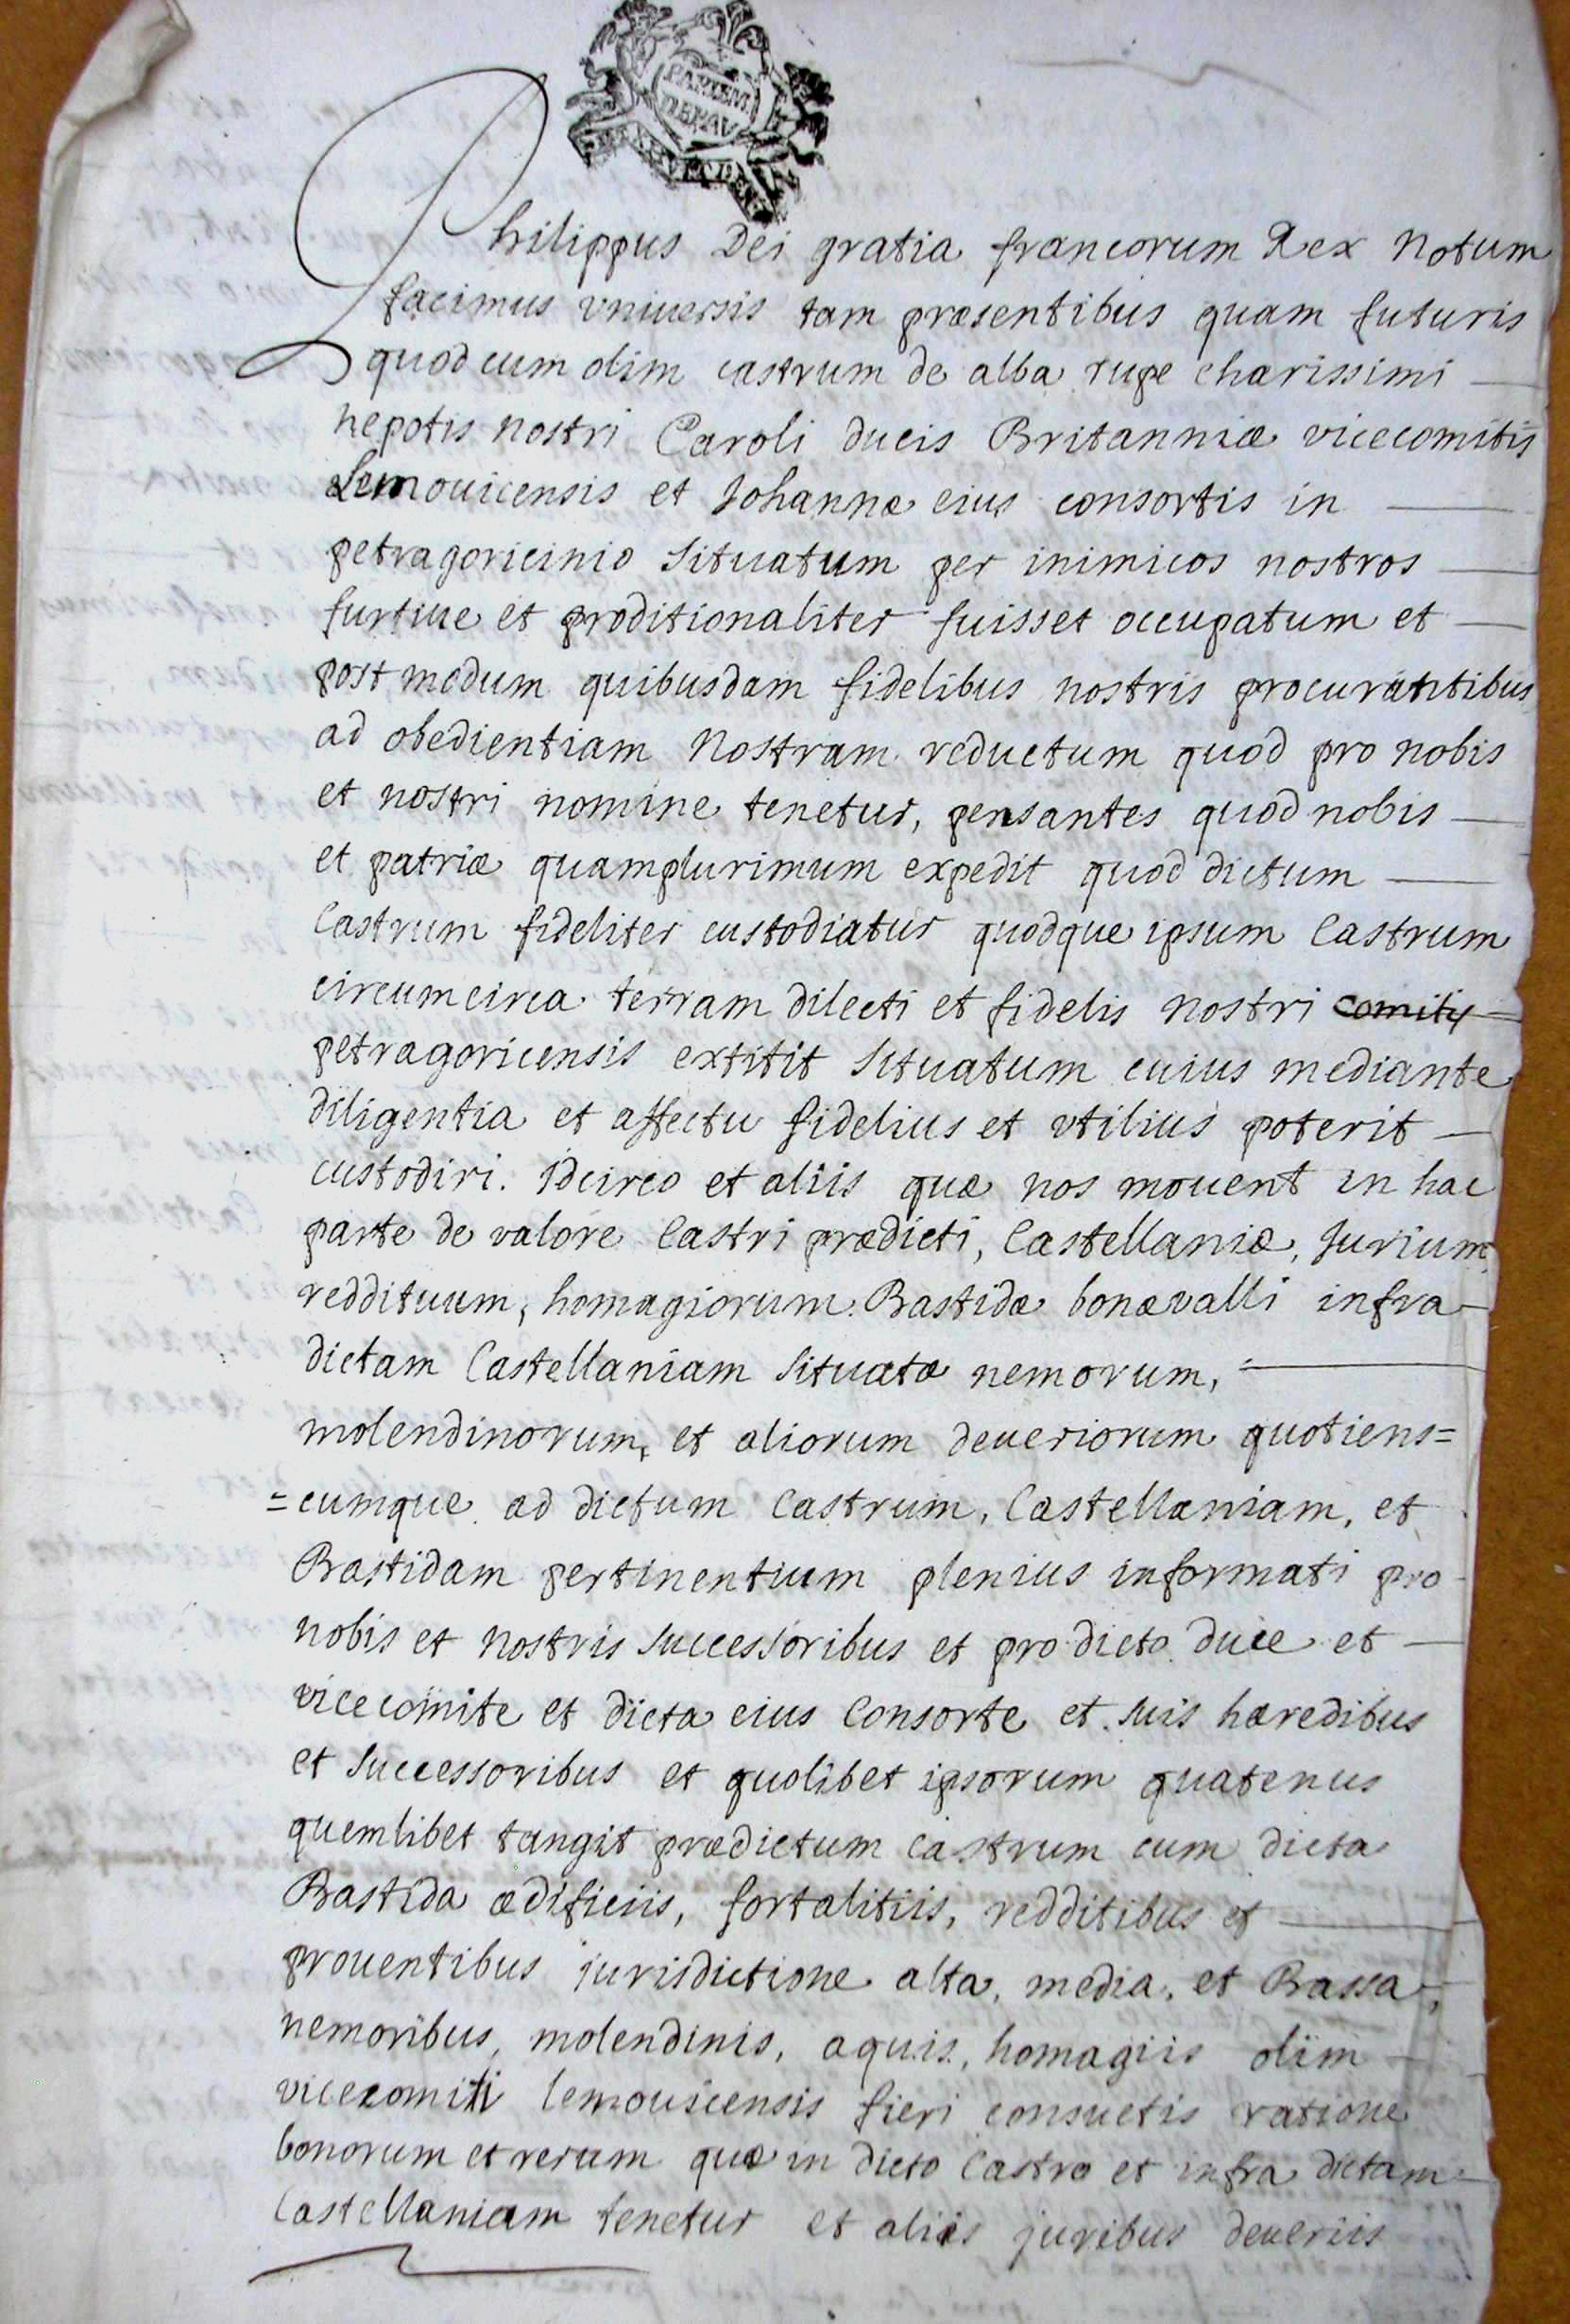 PARIEM
Philippus Dei gratia francorum Rex Notum
facimus vniuersis tam præsentibus quam futuris
quod cum olim castrum de alba rupe charissimi
nepotis nostri Caroli ducis Britanniæ vicecomitis
Lemouicensis et Johannæ eius consortis in
petragoricinio situatum per inimicos nostros
furtiue et proditionaliter fuisset occupatum et
post modum quibusdam fidelibus nostris procurantibus
ad obedientiam Nostram reductum quod pro nobis
et nostri nomine tenetur, pensantes quod nobis
et patriæ quamplurimum expedit quod dictum
Castrum fideliter custodiatur quodque ipsum Castrum
circumcirca terram dilecti et fidelis nostri comitis
petragoricensis extitit situatum cuius mediante
diligentia et affectu fidelius et vtilius poterit
custodiri. Idcirco et aliis quæ nos mouent in hac
parte de valore Castri prædicti, Castellaniæ, Jurium,
reddituum, homagiorum Bastidæ bonævalli infra
dictam Castellaniam situatæ nemorum,
molendinorum, et aliorum deueriorum quotiens=
=cumque ad dictum Castrum, Castellaniam, et
Bastidam pertinentium plenius informati pro
nobis et nostris successoribus et pro dicto duce et
vicecomite et dicta eius Consorte et suis hæredibus
et successoribus et quolibet ipsorum quatenus
quemlibet tangit prædictum Castrum cum dicta
Bastida ædificiis, fortalitiis, redditibus et
prouentibus jurisdictione alta, media, et Bassa,
nemoribus, molendinis, aquis, homagiis olim
vicecomiti lemouicensis fieri consuetis ratione
bonorum et rerum quæ in dicto Castro et infra dictam
Castellaniam tenetur et aliis juribus deueriis